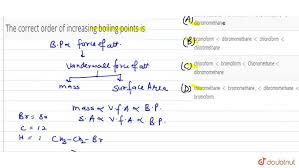 The correct order of increasing boiling points is
B.P ∝ force of att.
Vanderwall force of att.
mass Surface Area
mass ∝ V.f.A ∝ B.P.
S.A ∝ V.f.A ∝ B.P.
Br = 80
C = 12
H = 1 CH3-CH2-Br
(A)
dibromomethane
(B) bromoform < dibromomethane < chloroform <
chloromethane
(C) chloroform < bromoform < Chloromethane <
dibromomethane
(D) bromoform < chloroform < dibromomethane <
doubtnut